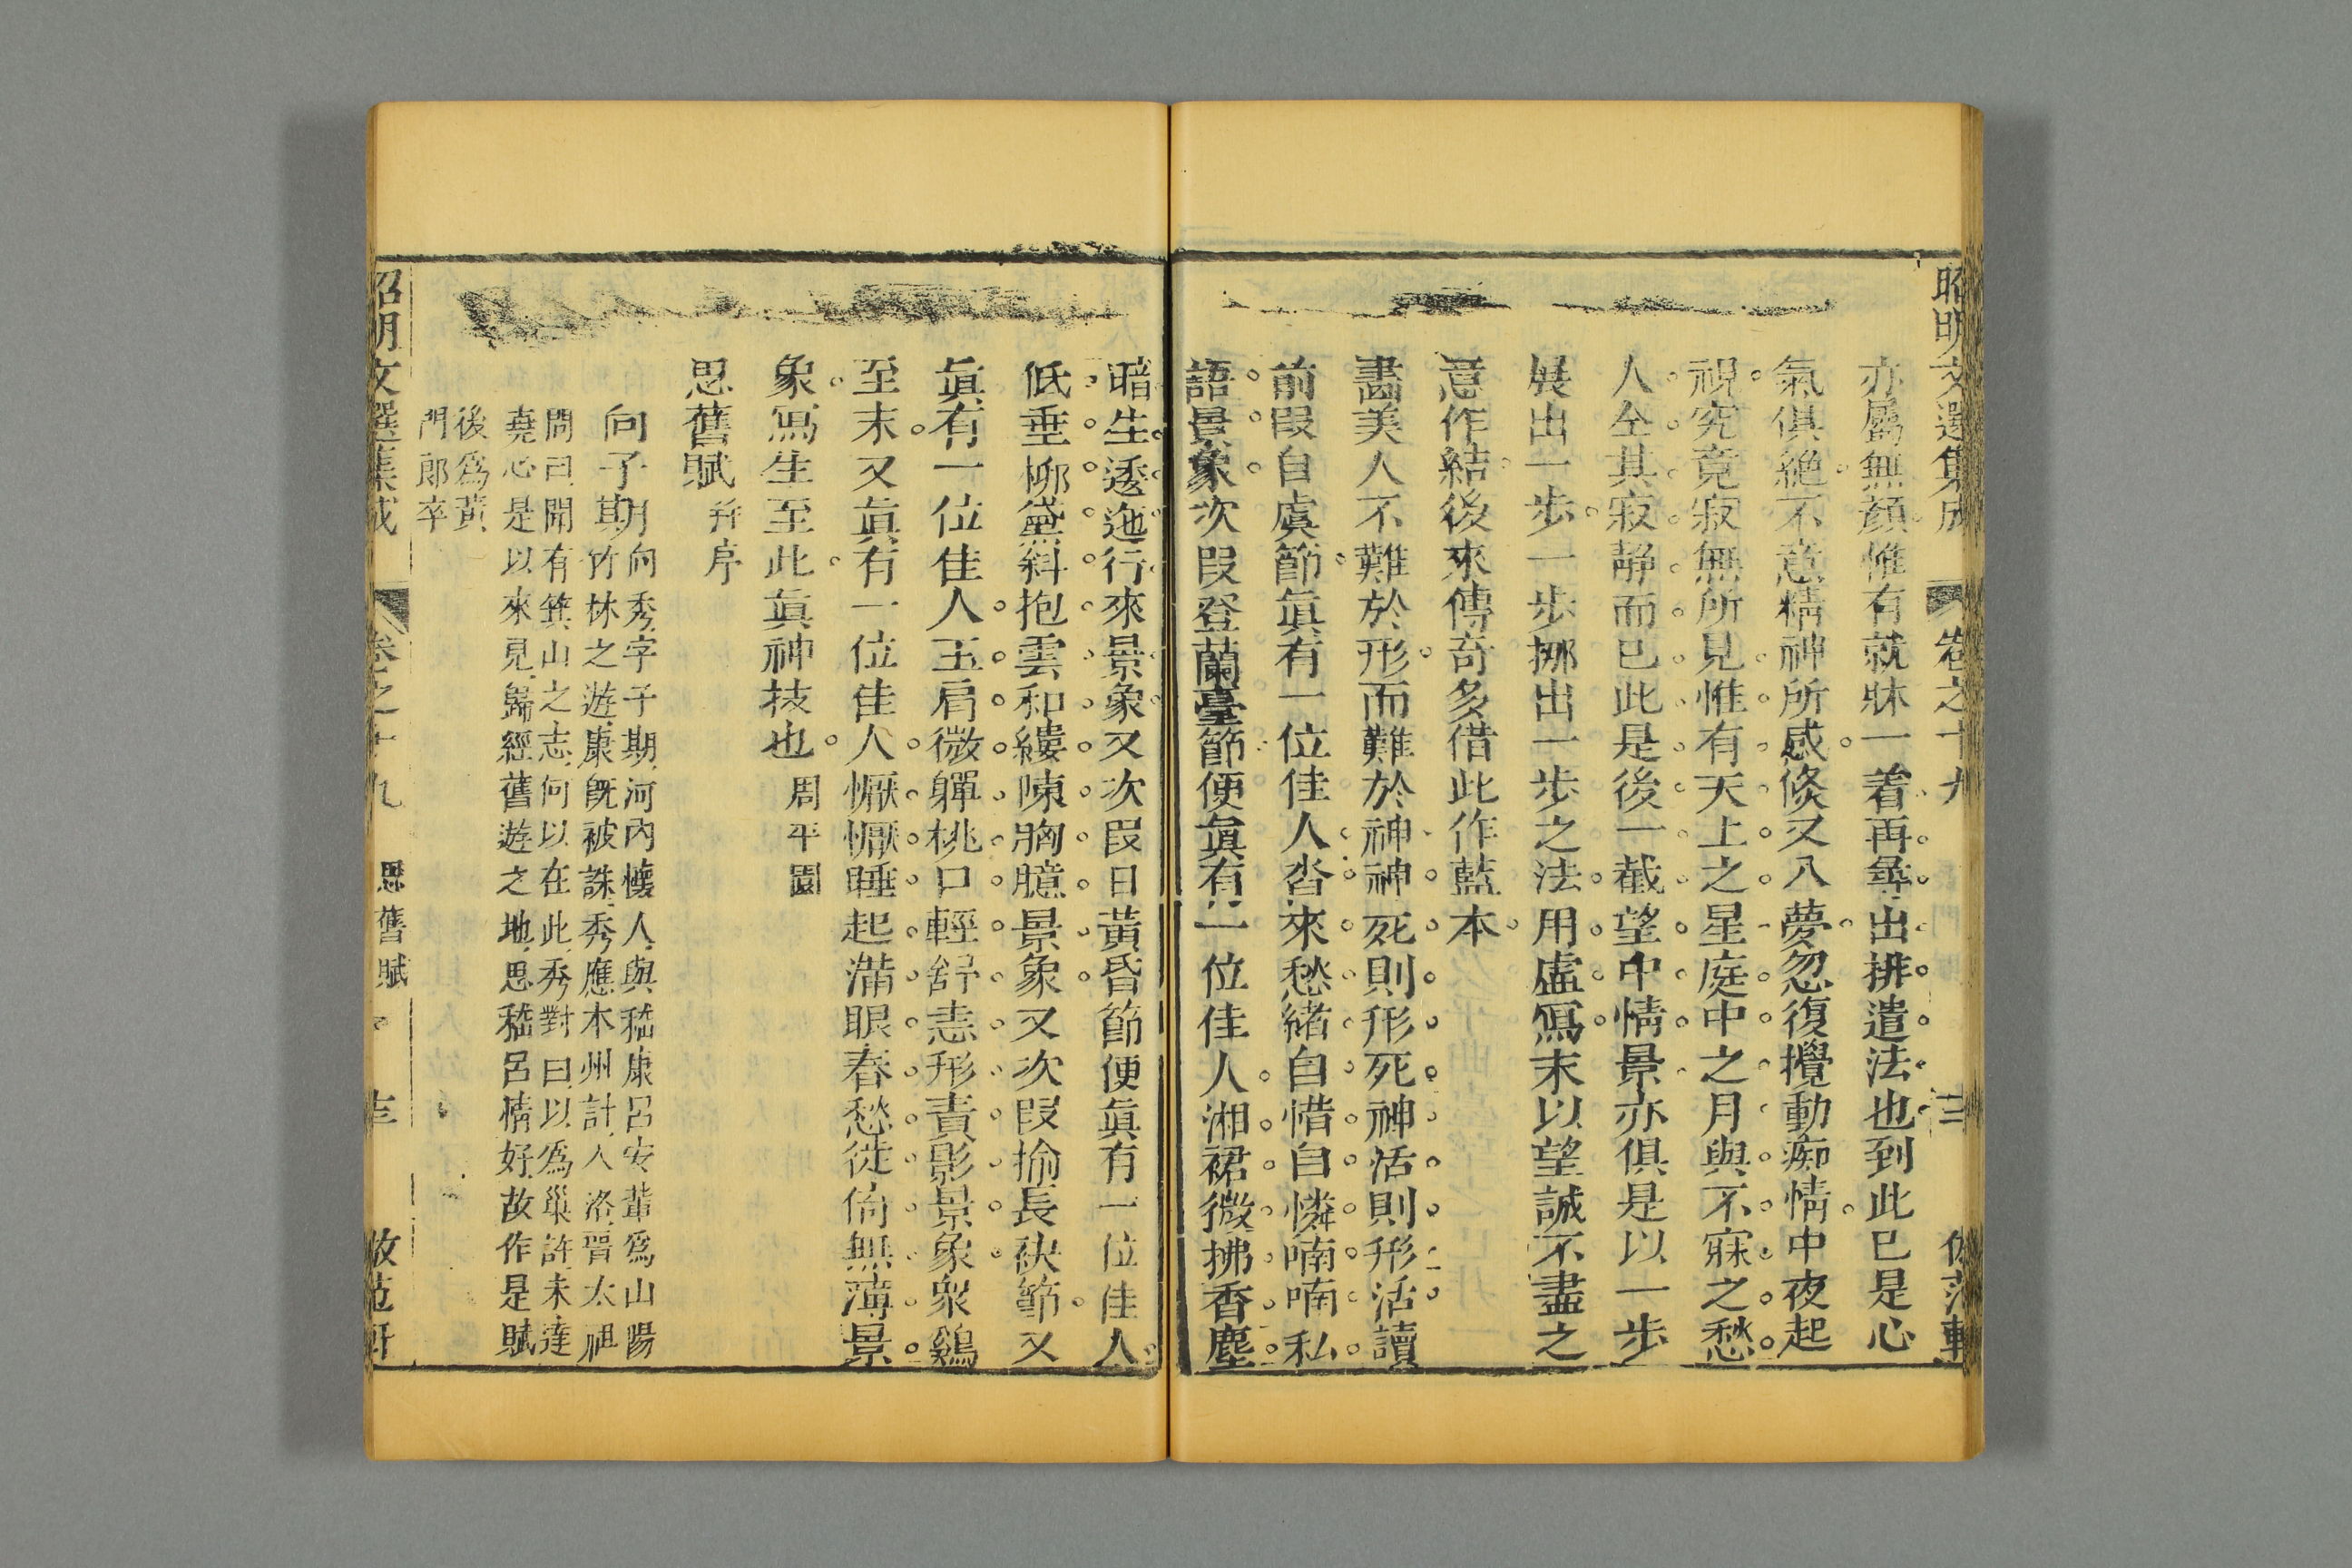 昭明文選集成 卷之十九 三
亦屬無顏惟有就牀一着再尋出排遣法也到此已是心
氣俱絕不意精神所感倏又入夢忽復攪動痴情中夜起
視究竟寂無所見惟有天上之星庭中之月與不寐之愁
人全其寂静而已此是後一截望中情景亦俱是以一步
展出一步一步挪出一步之法用虛寫末以望誠不盡之
意作結後來傳奇多借此作藍本
畵美人不難於形而難於神神死則形死神活則形活讀
前叚自虞節眞有一位佳人沓來愁緒自惜自憐喃喃私
語景象次叚登蘭臺節便眞有一位佳人湘裙微拂香塵
暗生逶迤行來景象又次叚日黃昏節便眞有一位佳人
低垂柳黛斜抱雲和縷陳胸臆景象又次叚揄長袂節又
眞有一位佳人玉肩微軃桃口輕舒恚形責影景象衆鷄
至末又眞有一位佳人懨懨睡起滿眼春愁徙倚無薄景
象寫生至此眞神技也 周平園
思舊賦 并序
向子期 向秀字子期河內懷人與嵇康呂安輩爲山陽
竹林之遊康既被誅秀應本州計入洛晉太祖
問曰聞有箕山之志何以在此秀對曰以爲巢許未達
堯心是以來見歸經舊遊之地思嵇呂情好故作是賦
後爲黃
門郎卒
昭明文選集成 卷之十九 思舊賦 三 倣范軒